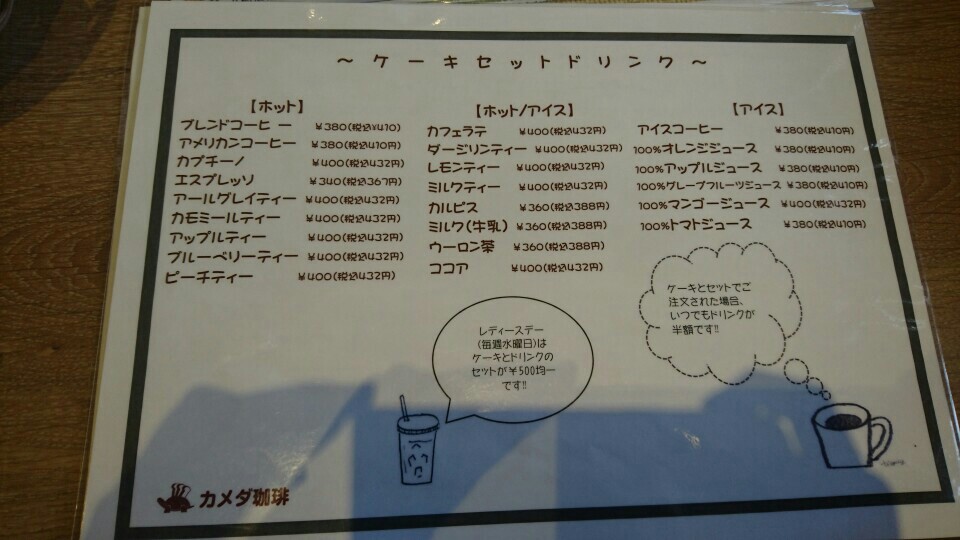 ～ケーキセットドリンク～
【ホット】
ブレンドコーヒー ￥380(税込¥410)
アメリカンコーヒー ￥380(税込410円)
カプチーノ ￥400(税込432円)
エスプレッソ ￥340(税込367円)
アールグレイティー ￥400(税込432円)
カモミールティー ￥400(税込432円)
アップルティー ￥400(税込432円)
ブルーベリーティー ￥400(税込432円)
ピーチティー ￥400(税込432円)
【ホット/アイス】
カフェラテ ￥400(税込432円)
ダージリンティー ￥400(税込432円)
レモンティー ￥400(税込432円)
ミルクティー ￥400(税込432円)
カルピス ￥360(税込388円)
ミルク(牛乳) ￥360(税込388円)
ウーロン茶 ￥360(税込388円)
ココア ￥400(税込432円)
【アイス】
アイスコーヒー ￥380(税込410円)
100%オレンジジュース ￥380(税込410円)
100%アップルジュース ￥380(税込410円)
100%グレープフルーツジュース ￥380(税込410円)
100%マンゴージュース ￥400(税込432円)
100%トマトジュース ￥380(税込410円)
ケーキとセットでご
注文された場合、
いつでもドリンクが
半額です!!
レディースデー
(毎週水曜日)は
ケーキとドリンクの
セットが￥500均一
です!!
カメダ珈琲